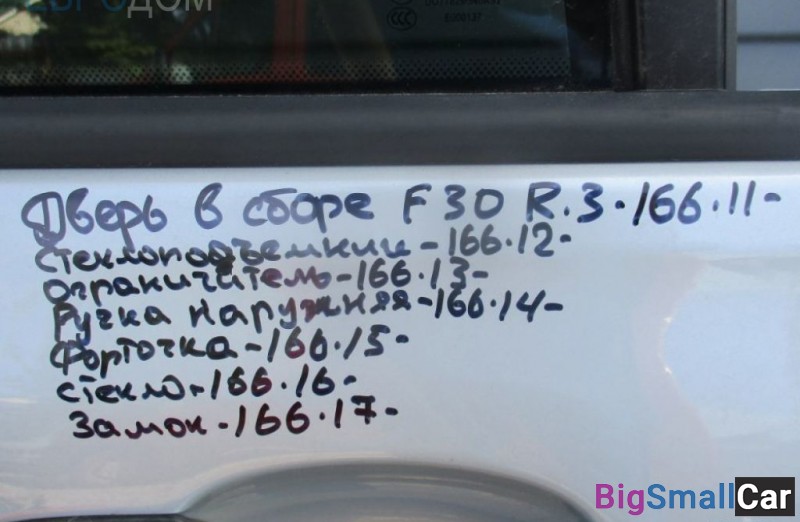 ЕВРОДОМ
Дверь в сборе F30 R.3-166.11-
стеклоподъемник-166.12-
ограничитель-166.13-
ручка наружняя-166.14-
Форточка-166.15-
стекло-166.16-
Замок-166.17-
BigSmallCar